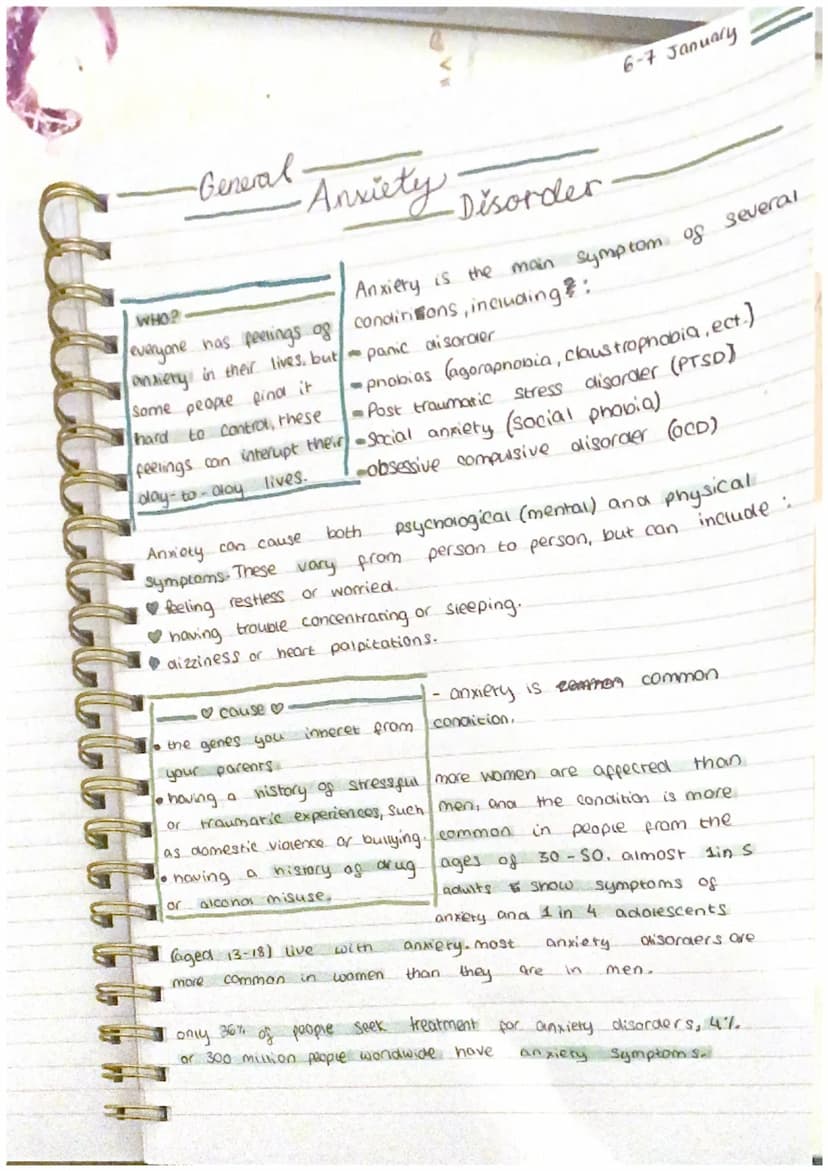 6-7 January
General Anxiety Disorder
WHO?
everyone has feelings of
anxiety in their lives, but
some people find it
hard to control, these
feelings can interupt their
day-to-day lives.
Anxiety is the main symptom of several
conditions, including:
- panic disorder
- phobias (agoraphobia, claustrophobia, ect.)
- Post traumatic stress disorder (PTSD)
- Social anxiety (social phobia)
- obsessive compulsive disorder (OCD)
Anxiety can cause both psychological (mental) and physical
symptoms. These vary from person to person, but can include:
♥ feeling restless or worried.
♥ having trouble concentrating or sleeping.
♥ dizziness or heart palpitations.
♡ cause ♡
• the genes you inheret from
your parents.
• having a history of stressful
or traumatic experiences, such
as domestic violence or bullying.
• having a history of drug
or alcohol misuse.
- anxiety is common
condition.
more women are affected than
men, and the condition is more
common in people from the
ages of 30-50. almost 1 in 5
adults show symptoms of
anxiety and 1 in 4 adolescents
(aged 13-18) live with anxiety. most anxiety disorders are
more common in women than they are in men.
only 36% of people seek treatment for anxiety disorders, 4%
or 300 million people worldwide have anxiety symptoms.